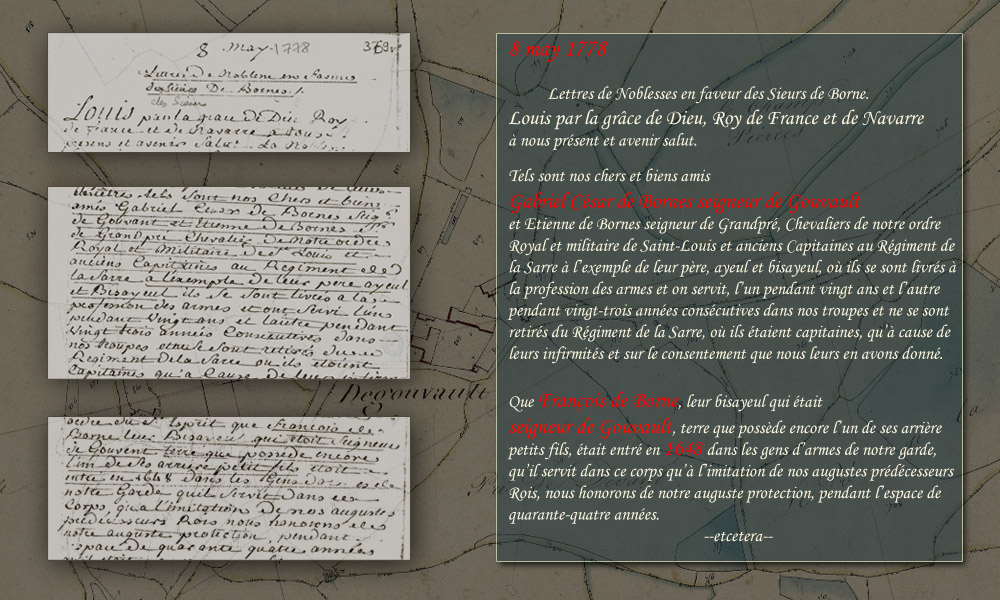 8 may 1778 369
Lettres de Noblesse en faveur
des Sieurs De Bornes /.
des Sieurs
Louis par la grace de Dieu Roy
de France et de Navarre a tous
presens et avenir Salut. La
tels Sont nos Chers et bien
amis Gabriel Cesar de Bornes Seigr
de Gouvaut et Etienne de Bornes Sgr
de Grandpré Chevaliers de Notre ordre
Royal et Militaire de St Louis et
anciens Capitaines au Regiment de
la Sarre a l'exemple de leur pere ayeul
et Bisayeul ils se Sont livrés a la
profession des armes et ont Servi l'un
pendant Vingt ans et l'autre pendant
Vingt trois années Consecutives dans
nos troupes et ne se Sont retirés du
Regiment de la Sarre ou ils etoient
Capitaines qu'a Cause de leurs
ordre du St Esprit que François de
Borne leur Bisayeul qui etoit Seigneur
de Gouvent terre que possede encore
l'un de Ses arriere petit fils etoit
entré en 1648 dans les Gens d'armes de
notre Garde qu'il Servit dans ce
Corps, qu'a l'imitation de nos augustes
predecesseurs Rois nous honorons de
notre auguste protection, pendant
espace de quarante quatre années
Degouvault
8 may 1778
Lettres de Noblesses en faveur des Sieurs de Borne.
Louis par la grâce de Dieu, Roy de France et de Navarre
à nous présent et avenir salut.
Tels sont nos chers et biens amis
Gabriel César de Bornes seigneur de Gouvault
et Etienne de Bornes seigneur de Grandpré, Chevaliers de notre ordre
Royal et militaire de Saint-Louis et anciens Capitaines au Régiment de
la Sarre à l'exemple de leur père, ayeul et bisayeul, où ils se sont livrés à
la profession des armes et on servit, l'un pendant vingt ans et l'autre
pendant vingt-trois années consécutives dans nos troupes et ne se sont
retirés du Régiment de la Sarre, où ils étaient capitaines, qu'à cause de
leurs infirmités et sur le consentement que nous leurs en avons donné.
Que François de Borne, leur bisayeul qui était
seigneur de Gouvault, terre que possède encore l'un de ses arrière
petits fils, était entré en 1648 dans les gens d'armes de notre garde,
qu'il servit dans ce corps qu'à l'imitation de nos augustes prédécesseurs
Rois, nous honorons de notre auguste protection, pendant l'espace de
quarante-quatre années.
--etcetera--